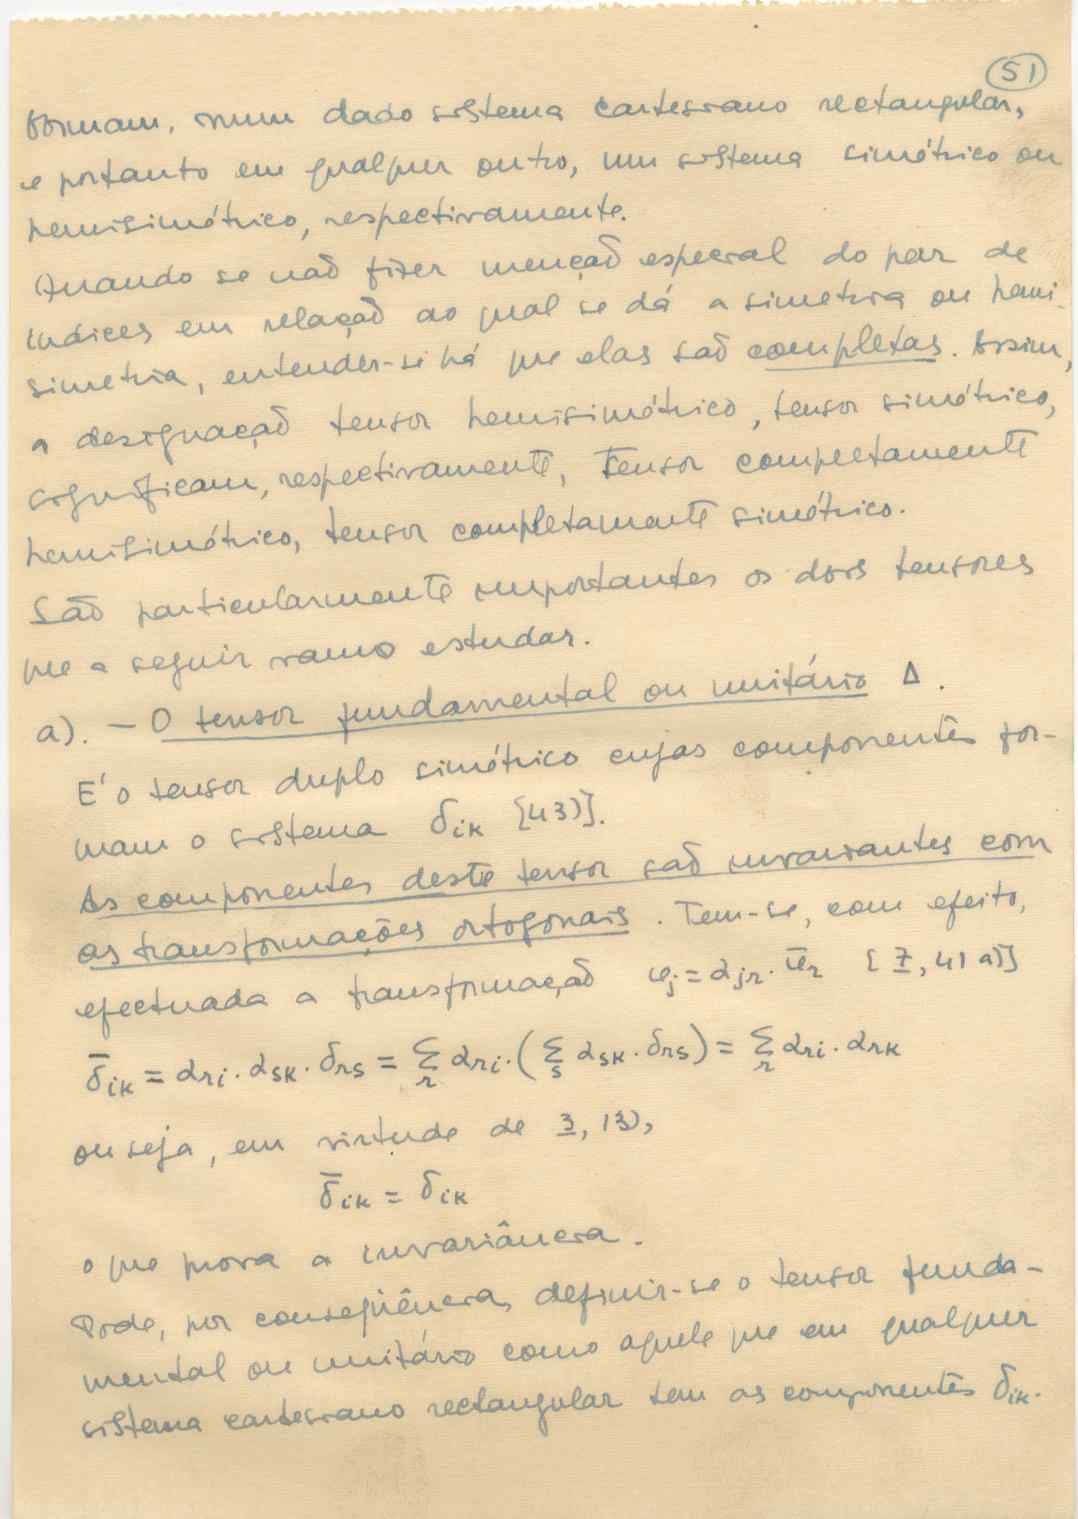 51
formam, num dado sistema cartesiano rectangular,
e portanto em qualquer outro, um sistema simétrico ou
hemisimétrico, respectivamente.
Quando se não fizer menção especial do par de
índices em relação ao qual se dá a simetria ou hemi-
simetria, entender-se há que elas são completas. Assim,
a designação tensor hemisimétrico, tensor simétrico,
significam, respectivamente, tensor completamente
hemisimétrico, tensor completamente simétrico.
São particularmente importantes os dois tensores
que a seguir vamos estudar.
a). — O tensor fundamental ou unitário Δ.
E' o tensor duplo simétrico cujas componentes for-
mam o sistema δik [43)].
As componentes deste tensor são invariantes com
as transformações ortogonais. Tem-se, com efeito,
efectuada a transformação φj = αjr · φ̄r [7, 41 a)]
δ̄ik = αri · αsk · δrs = Σr αri · (Σs αsk · δrs) = Σr αri · αrk
ou seja, em virtude de 3, 13),
δ̄ik = δik
o que prova a invariância.
Pode, por conseqüência, definir-se o tensor funda-
mental ou unitário como aquele que em qualquer
sistema cartesiano rectangular tem as componentes δik.